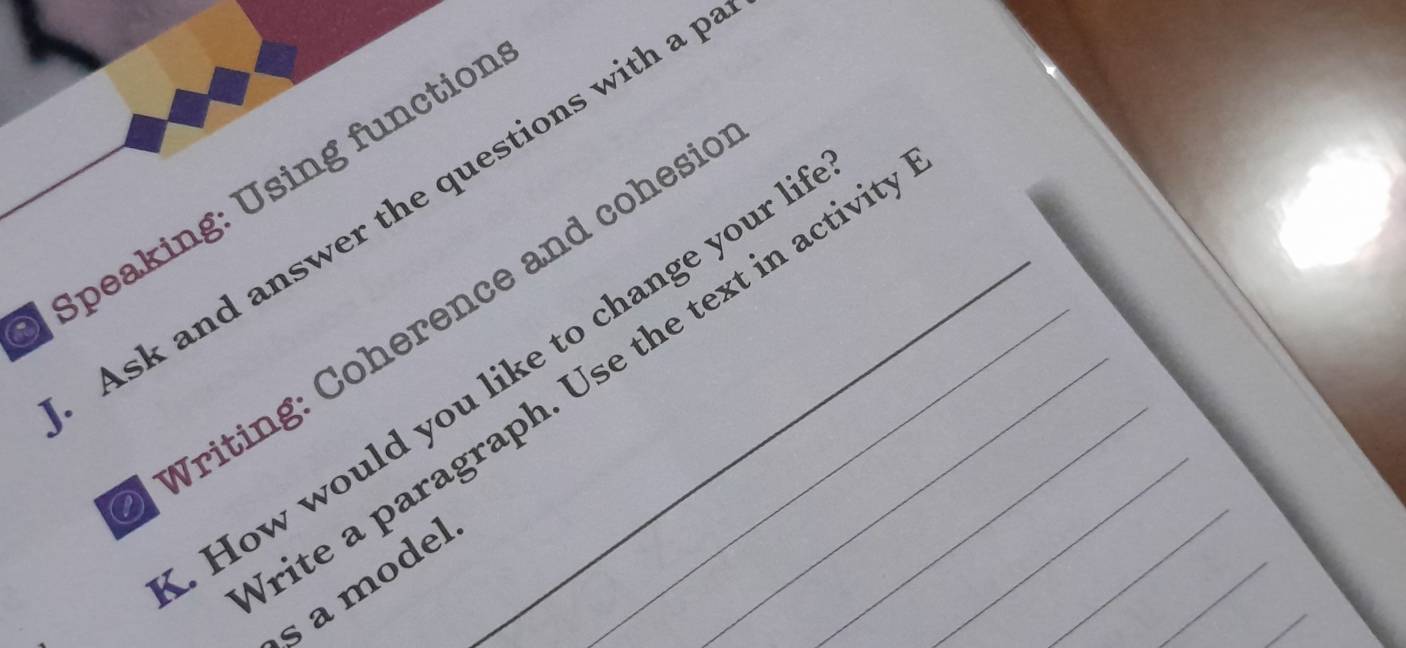 Speaking: Using functions
J. Ask and answer the questions with a
Writing: Coherence and cohesion
K. How would you like to change your life?
Write a paragraph. Use the text in activity E
as a model.